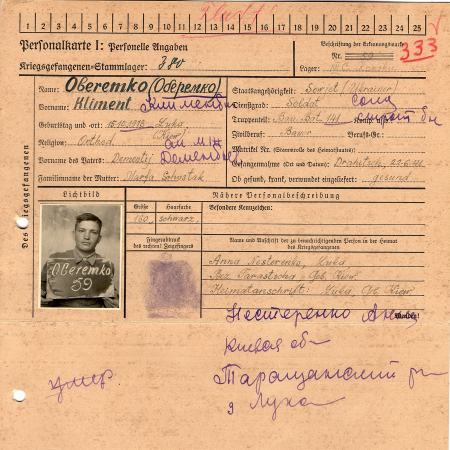 1 2 3 4 5 6 7 8 9 10 11 12 13 14 15 16 17 18 19 20 21 22 23 24 25
Personalkarte I: Personelle Angaben
Beschriftung der Erkennungsmarke
Nr. 333
Kriegsgefangenen-Stammlager: 380
Lager:
Des Kriegsgefangenen
Name: Oberemko (Оберемко)
Staatsangehörigkeit: Sovjet (Ukrainer)
Vorname: Kliment Климентий
Dienstgrad: Soldat солд
Geburtstag und -ort: 15.10.1918 Luka
(Kiew)
Truppenteil: Bau-Bat 141
Religion: Orthod.
Zivilberuf: Bauer Berufs-Gr.:
Matrikel Nr. (Stammrolle des Heimatstaates):
Vorname des Vaters: Dementij Дементий
Gefangennahme (Ort und Datum):
Familienname der Mutter: Marja
Ob gesund, krank, verwundet eingeliefert: gesund
Lichtbild
Nähere Personalbeschreibung
Größe Haarfarbe Besondere Kennzeichen:
160 schwarz
Oberemko
59
Fingerabdruck
des rechten Zeigefingers
Name und Anschrift der zu benachrichtigenden Person in der Heimat
des Kriegsgefangenen
Anna Nesterenko, Luka
Bez. Taraschtscha Geb. Kiew
Heimatanschrift: Luka Gb Kiew
Wenden!
Нестеренко Анна
Киевая об
Таращанский р-н
д Лука
умер